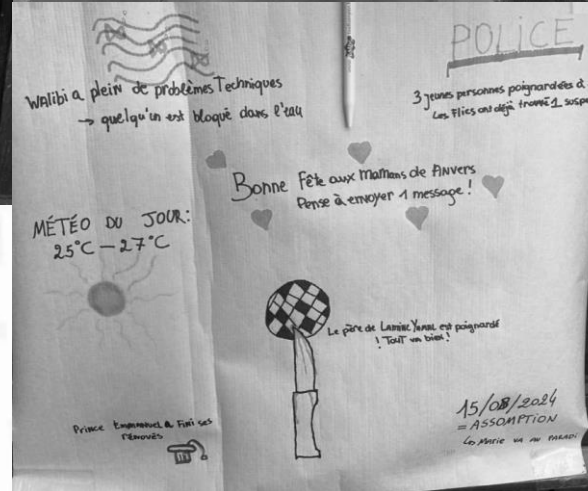 Walibi a plein de problèmes Techniques
→ quelqu'un est bloqué dans l'eau
POLICE
3 jeunes personnes poignardées à
Les Flics ont déjà trouvé 1 susp
Bonne Fête aux Mamans de Anvers
Pense à envoyer 1 message !
MÉTÉO DU JOUR:
25°C – 27°C
Le père de Lamine Yamal est poignardé
! Tout va bien !
Prince Emmanuel a Fini ses
rénovés
15/08/2024
= ASSOMPTION
Marie va au PARADI